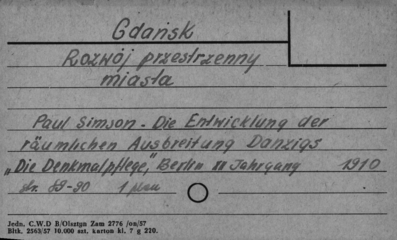 Gdańsk
Rozwój przestrzenny
miasta
Paul Simson - Die Entwicklung der
räumlichen Ausbreitung Danzigs
„Die Denkmalpflege," Berlin XII Jahrgang 1910
str. 89-90 1 plan
Jedn. C.W.D B/Olsztyn Zam 2776 /on/57
Bltk. 2563/57 10.000 szt. karton kl. 7 g 220.